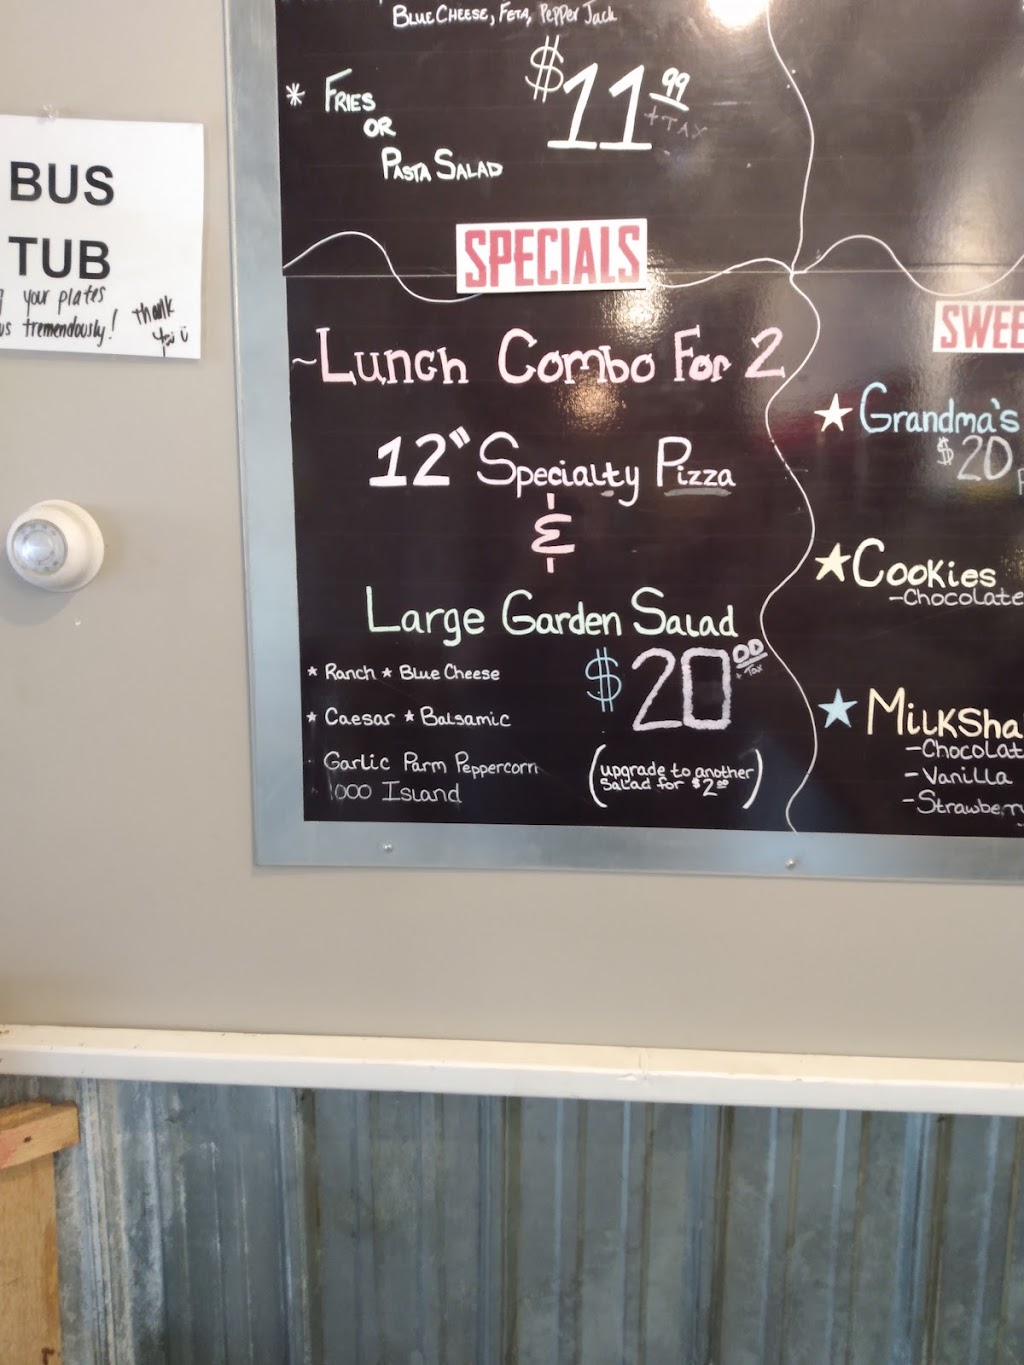 Blue Cheese, Feta, Pepper Jack
* Fries
or
Pasta Salad
$11.99
+ TAX
BUS
TUB
your plates
tremendously!
Thank
You
SPECIALS
~Lunch Combo For 2
12" Specialty Pizza
&
Large Garden Salad
* Ranch * Blue Cheese
* Caesar * Balsamic
Garlic Parm Peppercorn
1000 Island
$20.00
+ Tax
(upgrade to another
salad for $2.00)
★ Grandma's
$20
★ Cookies
- Chocolate
- Vanilla